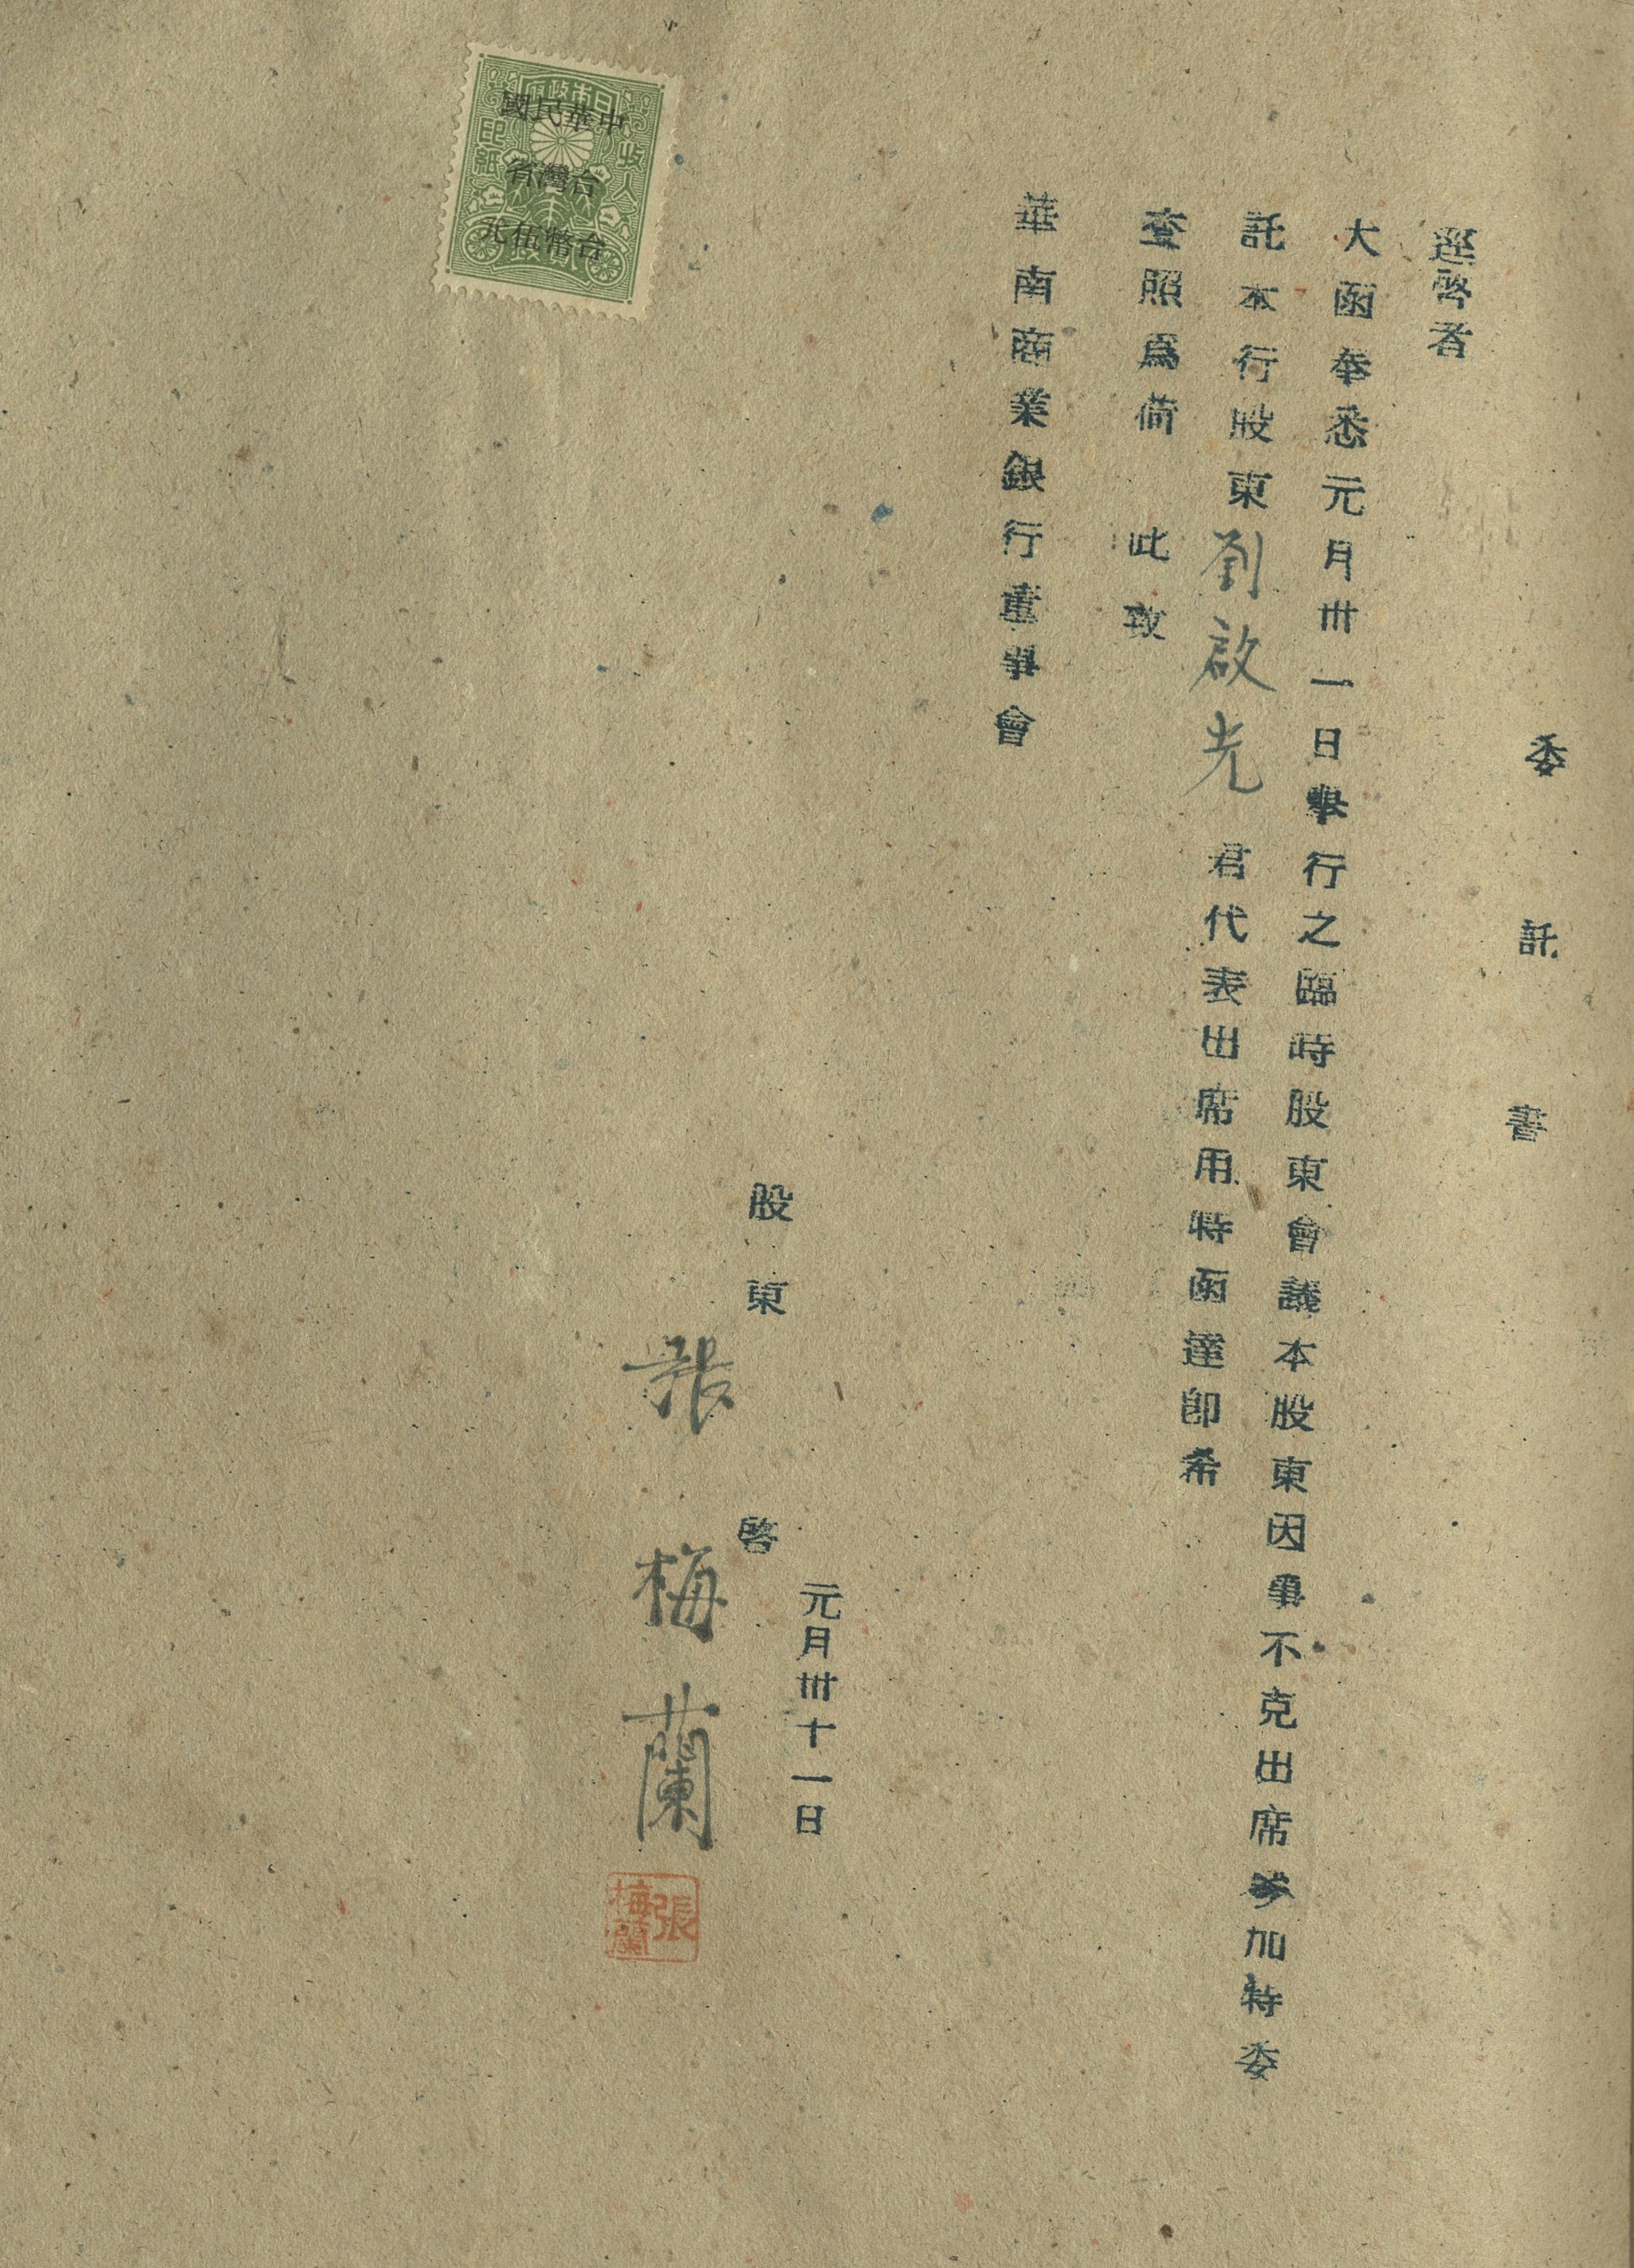 委託書
逕啓者
大函奉悉元月卅一日舉行之臨時股東會議本股東因事不克出席參加特委
託本行股東劉啟光君代表出席用特函達卽希
查照爲荷 此致
華南商業銀行董事會
元月卅十一日
股東 啓
張梅蘭
張梅蘭
日本政府
收入
印紙
中華民國
台灣省
台幣伍元